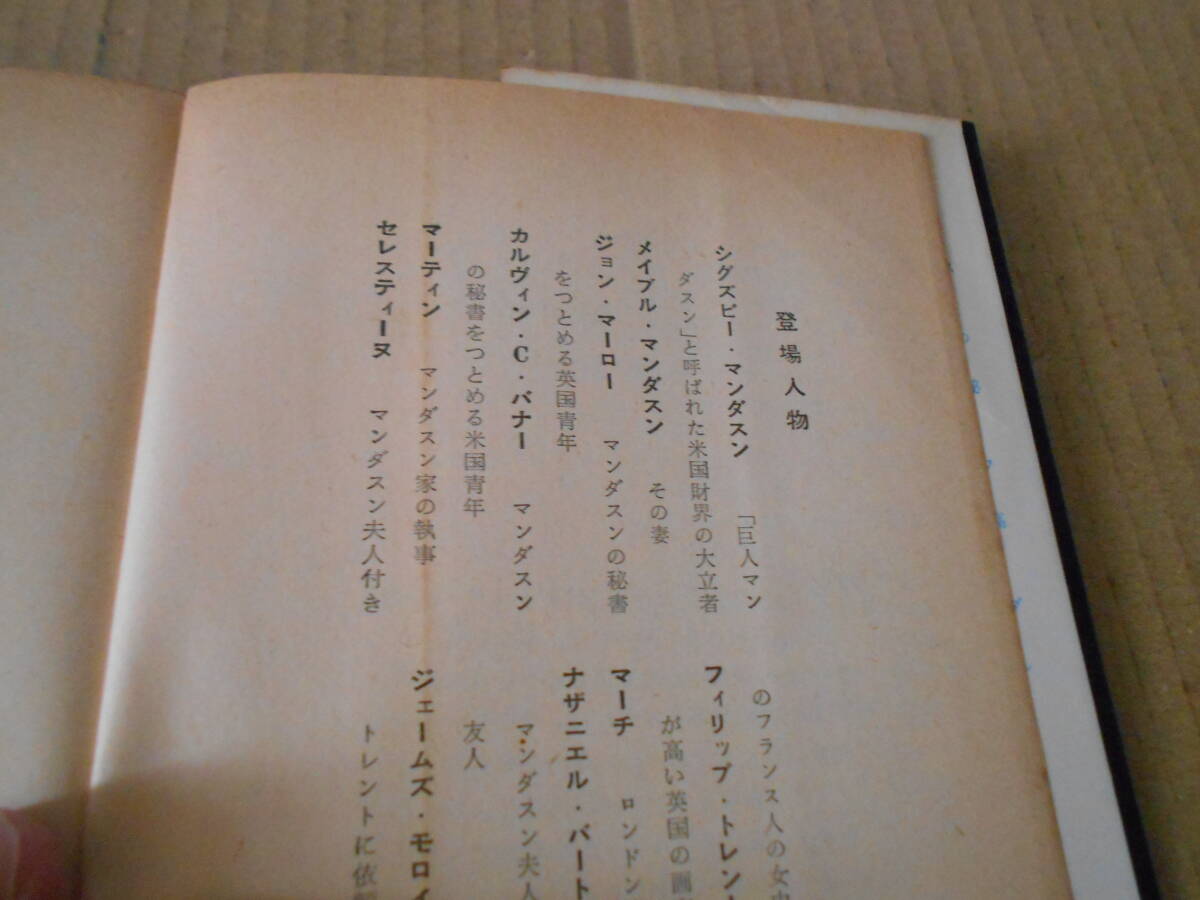 登場人物
シグズビー・マンダスン 「巨人マン
ダスン」と呼ばれた米国財界の大立者
メイブル・マンダスン その妻
ジョン・マーロー マンダスンの秘書
をつとめる英国青年
カルヴィン・C・バナー マンダスン
の秘書をつとめる米国青年
マーティン マンダスン家の執事
セレスティーヌ マンダスン夫人付き
のフランス人の女
フィリップ・トレン
が高い英国の画
マーチ ロンドン
ナザニエル・バート
マンダスン夫人
友人
ジェームズ・モロイ
トレントに依